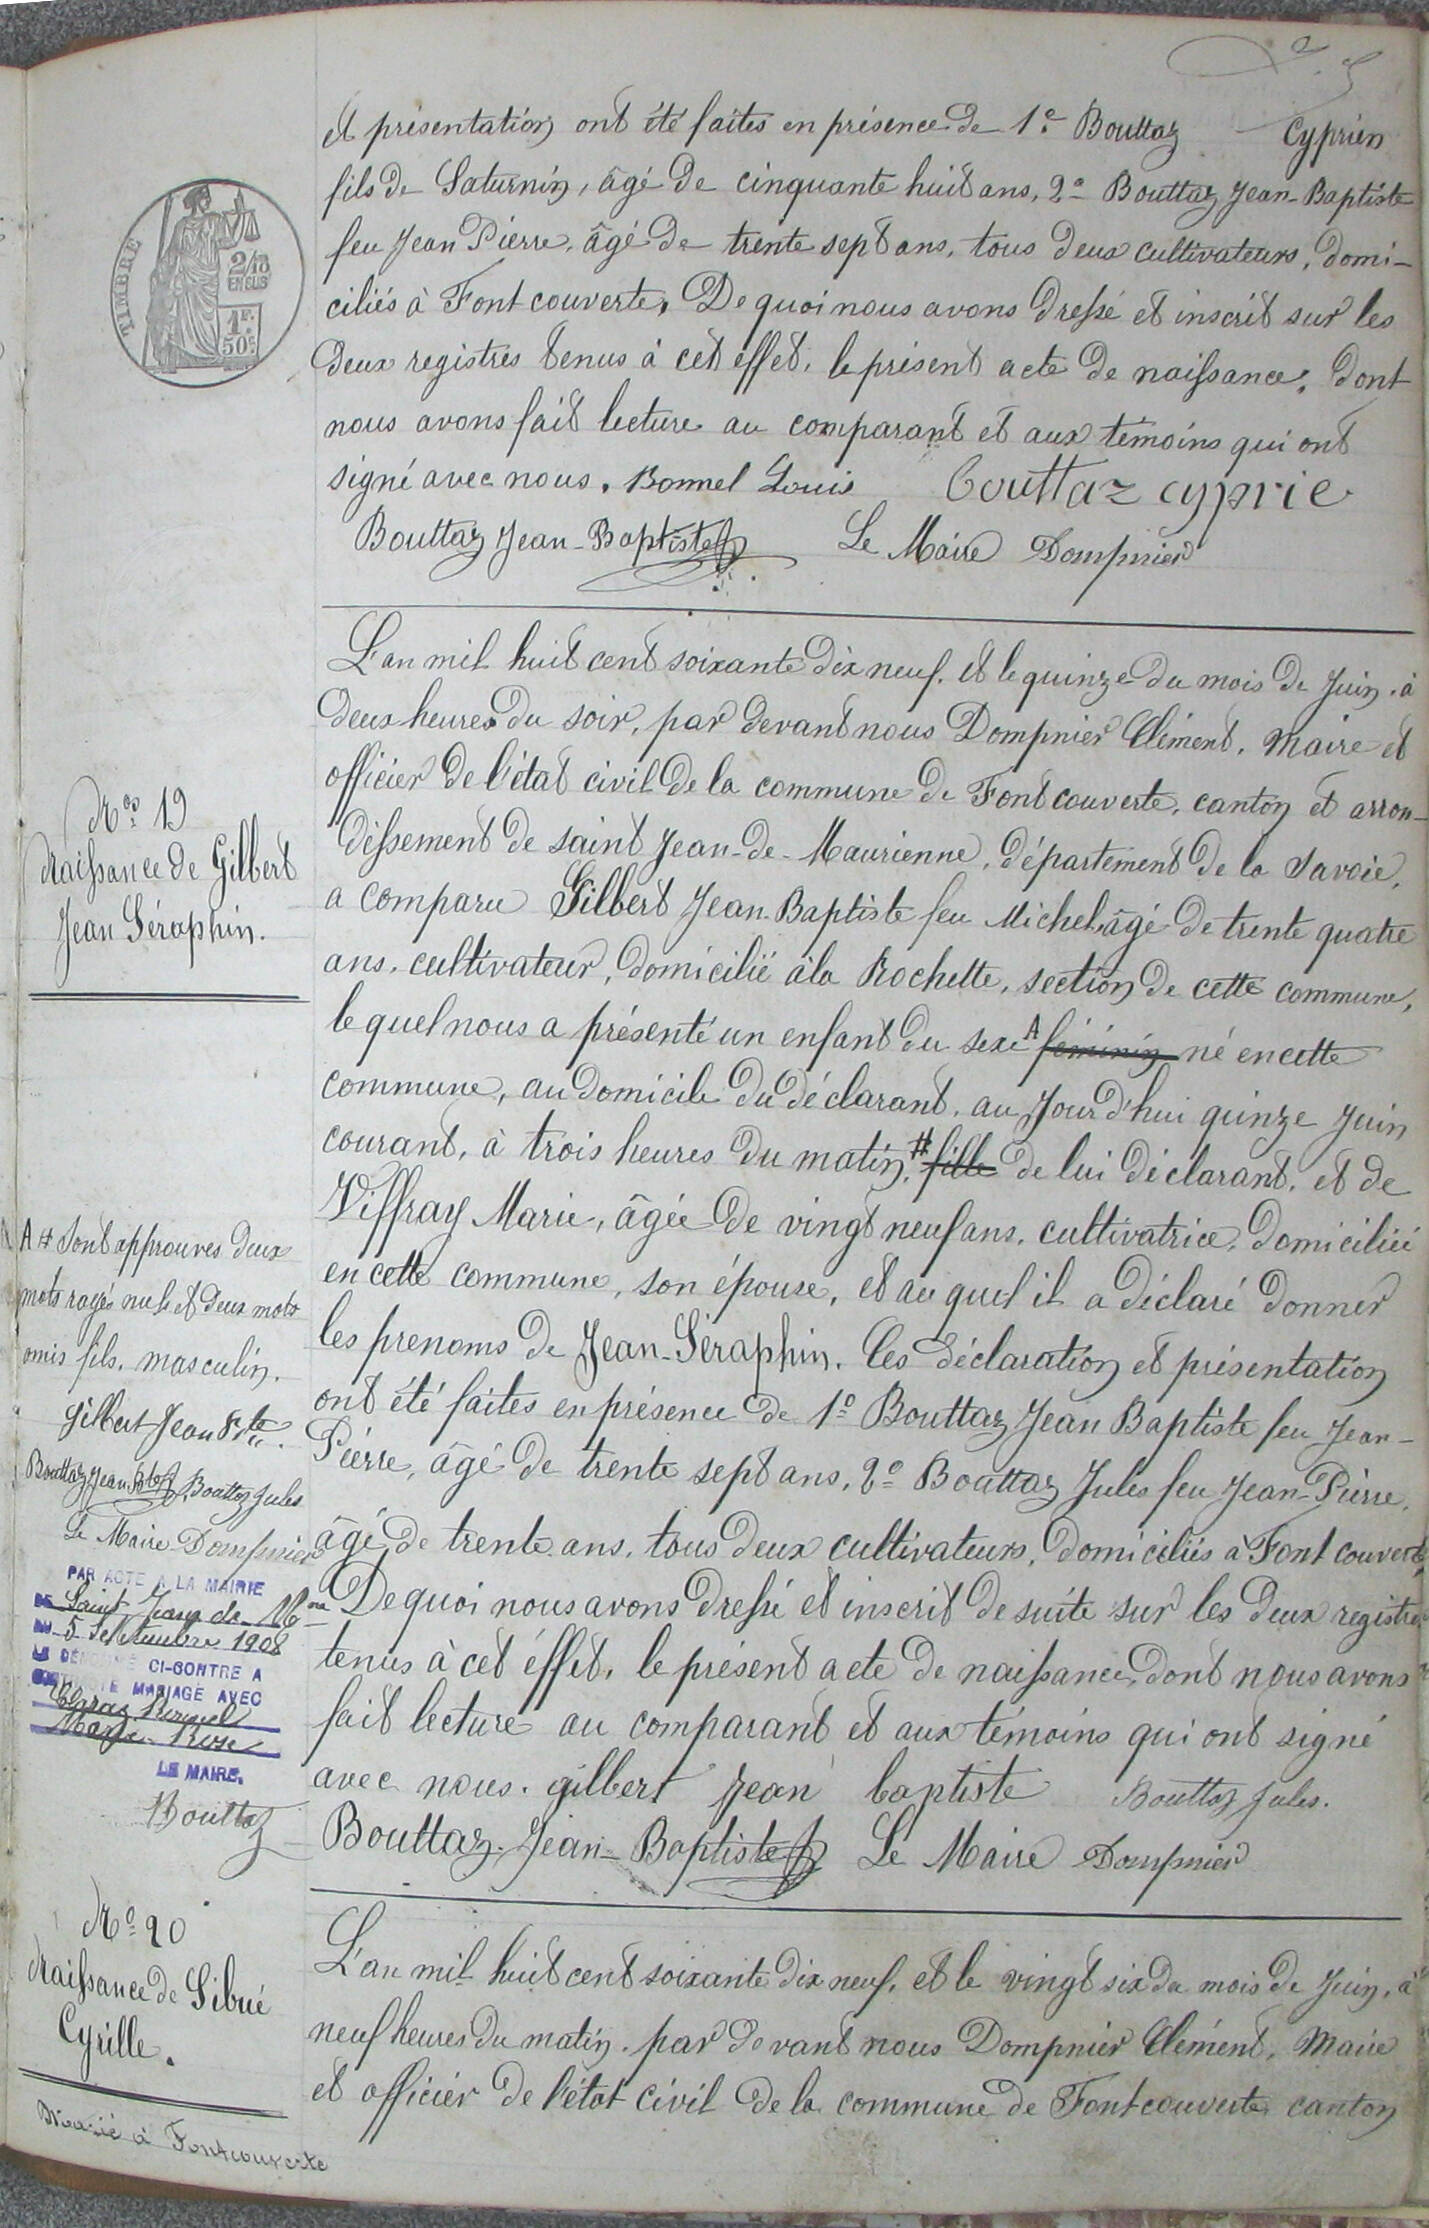 et présentation ont été faites en présence de 1º Bouttaz Cyprien
fils de Saturnin, âgé de cinquante huit ans, 2º Bouttaz Jean-Baptiste
feu Jean Pierre, âgé de trente sept ans, tous deux cultivateurs, domi-
ciliés à Fontcouverte. De quoi nous avons dressé et inscrit sur les
deux registres tenus à cet effet, le présent acte de naissance, dont
nous avons fait lecture au comparant et aux témoins qui ont
signé avec nous. Bonnel Louis Bouttaz cyprie
Bouttaz Jean-Baptiste Le Maire Dompnier
TIMBRE
2/10
EN SUS
1F.
50C.
Nº 19
Naissance de Gilbert
Jean Séraphin.
L'an mil huit cent soixante dix neuf. et le quinze du mois de Juin, à
deux heures du soir, par devant nous Dompnier Clément, Maire et
officier de l'état civil de la commune de Fontcouverte, canton et arron-
dissement de saint Jean-de-Maurienne, département de la Savoie,
a comparu Gilbert Jean-Baptiste feu Michel, âgé de trente quatre
ans, cultivateur, domicilié à la Rochette, section de cette commune,
lequel nous a présenté un enfant du sexe A féminin né en cette
commune, au domicile du déclarant, au Jourd'hui quinze Juin
courant, à trois heures du matin, # fille de lui déclarant, et de
Viffray Marie, âgée de vingt neuf ans, cultivatrice, domiciliée
en cette commune, son épouse, et au quel il a déclaré donner
les prenoms de Jean-Séraphin. Ces déclaration et présentation
ont été faites en présence de 1º Bouttaz Jean Baptiste feu Jean-
Pierre, âgé de trente sept ans, 2º Bouttaz Jules feu Jean-Pierre,
âgé de trente ans, tous deux cultivateurs, domiciliés à Fontcouverte,
De quoi nous avons dressé et inscrit de suite sur les deux registres
tenus à cet éffet, le présent acte de naissance, dont nous avons
fait lecture au comparant et aux témoins qui ont signé
avec nous. gilbert Jean baptiste Bouttaz Jules.
Bouttaz Jean-Baptiste Le Maire Dompnier
A # Sont approuvés deux
mots rayés nuls et deux mots
omis fils, masculin.
Gilbert Jean Bte.
Bouttaz Jean Bte Bouttaz Jules
Le Maire Dompnier
PAR ACTE A LA MAIRIE
DE Saint Jean de Mne
DU 5 Septembre 1908
LE DÉNOMMÉ CI-CONTRE A
CONTRACTÉ MARIAGE AVEC
Marie Rose
LE MAIRE.
Bouttaz
Nº 20
Naissance de Sibué
Cyrille.
Marié à Fontcouverte
L'an mil huit cent soixante dix neuf, et le vingt six du mois de Juin, à
neuf heures du matin, par devant nous Dompnier Clément, Maire
et officier de l'état civil de la commune de Fontcouverte canton